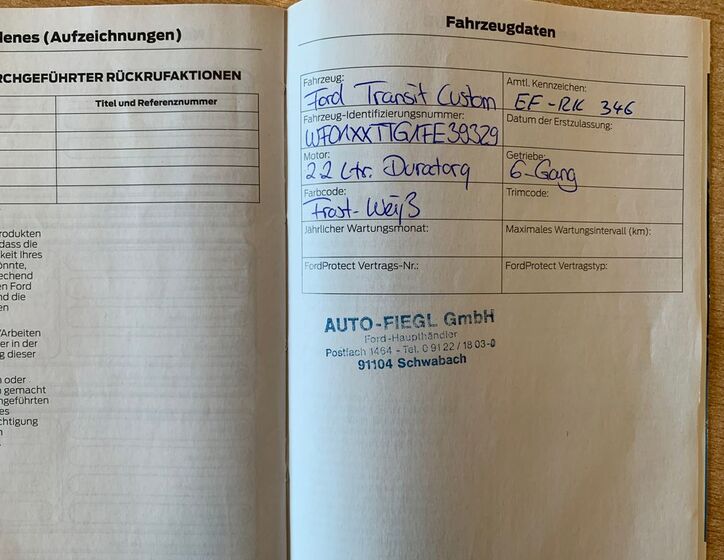 lenes (Aufzeichnungen)
RCHGEFÜHRTER RÜCKRUFAKTIONEN
Titel und Referenznummer
rodukten
dass die
keit Ihres
önnte,
echend
en Ford
nd die
en
'Arbeiten
er in der
g dieser
n oder
n gemacht
ngeführten
es
chtigung
n
Fahrzeugdaten
Fahrzeug:
Ford Transit Custom
Amtl. Kennzeichen:
EF-RK 346
Fahrzeug-Identifizierungsnummer:
WF01XXTTG1FE39329
Datum der Erstzulassung:
Motor:
2.2 Ltr. Duratorq
Getriebe:
6-Gang
Farbcode:
Frost-Weiß
Trimcode:
Jährlicher Wartungsmonat:
Maximales Wartungsintervall (km):
FordProtect Vertrags-Nr.:
FordProtect Vertragstyp:
AUTO-FIEGL GmbH
Ford-Haupthändler
Postfach 1464 - Tel. 0 91 22 / 18 03-0
91104 Schwabach